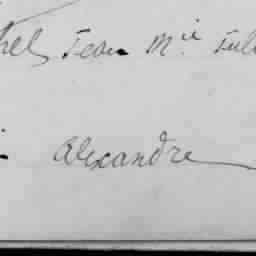 hel, Jean M.ie Jul
Alexandre